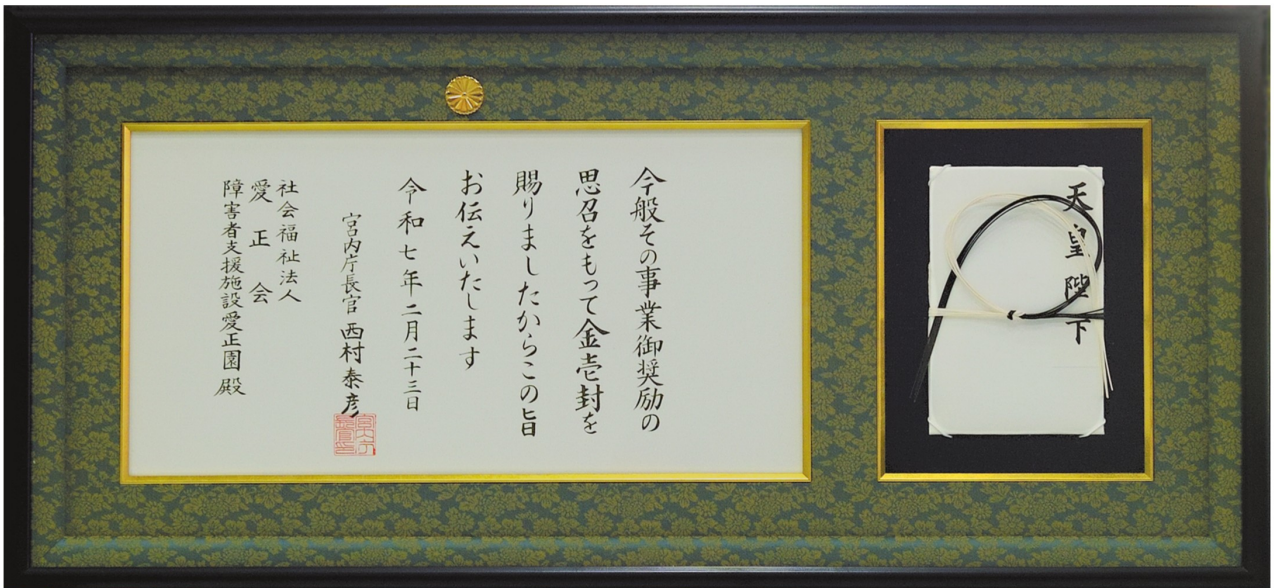 天皇陛下
今般その事業御奨励の
思召をもって金壱封を
賜りましたからこの旨
お伝えいたします
令和七年二月二十三日
宮内庁長官 西村泰彦
社会福祉法人
愛正会
障害者支援施設愛正園 殿